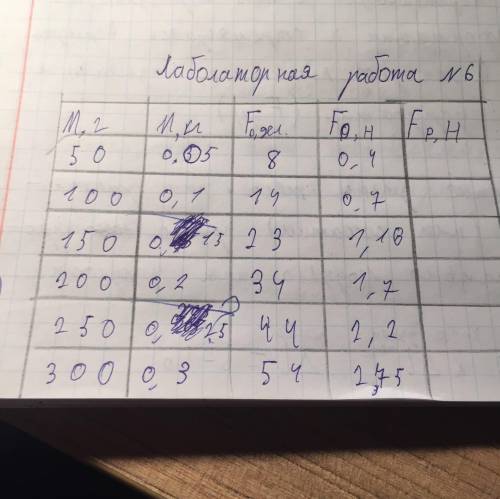 Лаболаторная работа №6
m, г m, кг F₀, эл. F₀, н Fр, Н
50 0,05 8 0,4
100 0,1 14 0,7
150 0,15 23 1,16
200 0,2 34 1,7
250 0,25 44 2,2
300 0,3 54 2,75